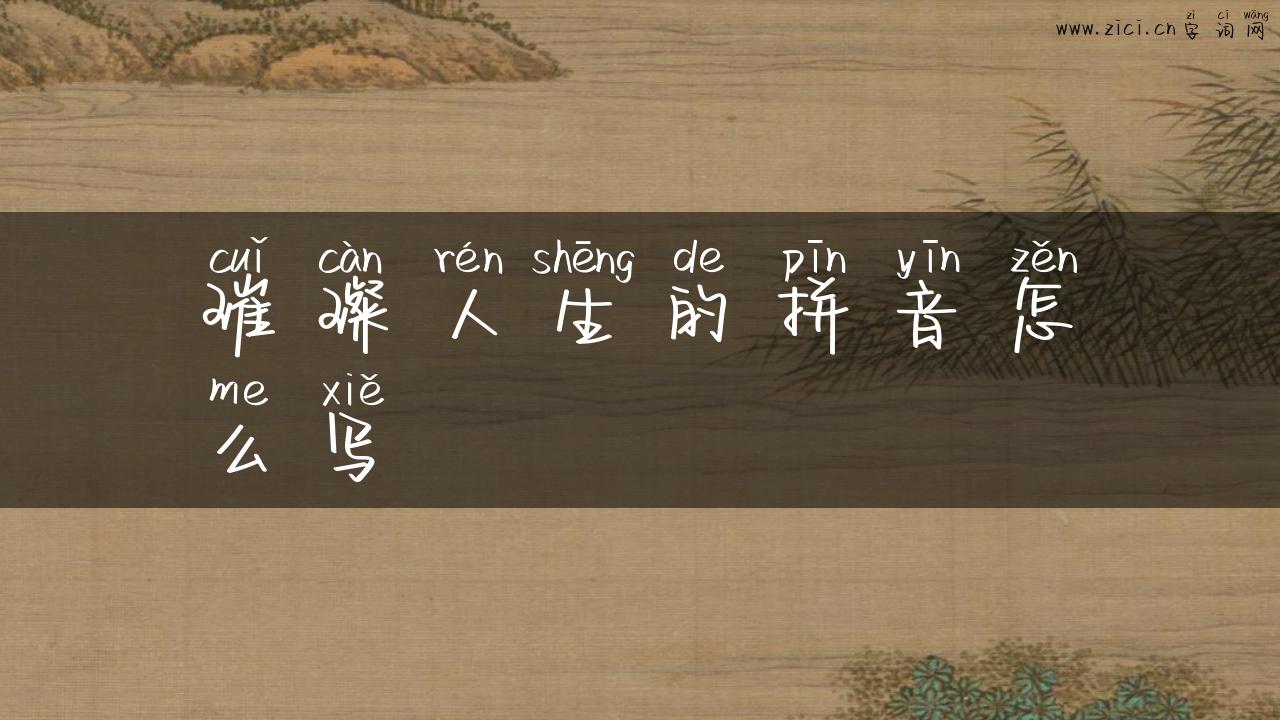 zì cí wǎng
www.zici.cn 字 词 网
cuǐ càn rén shēng de pīn yīn zěn
璀 璨 人 生 的 拼 音 怎
me xiě
么 写